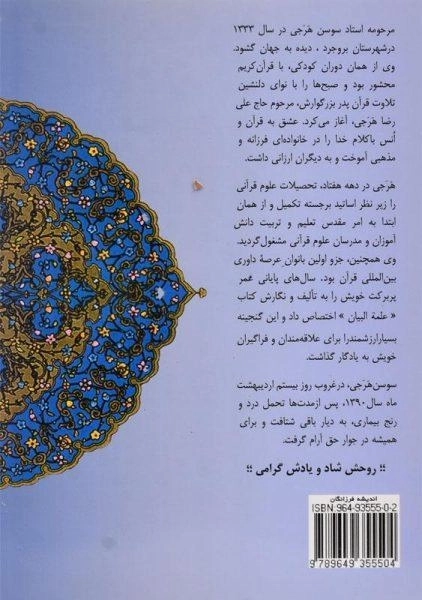 مرحومه استاد سوسن هَرَجی در سال ۱۳۳۳
درشهرستان بروجرد ، دیده به جهان گشود.
وی از همان دوران کودکی، با قرآن‌کریم
محشور بود و صبح‌ها را با نوای دلنشین
تلاوت قرآن پدر بزرگوارش، مرحوم حاج علی
رضا هَرَجی، آغاز می‌کرد. عشق به قرآن و
اُنس باکلام خدا را در خانواده‌ای فرزانه و
مذهبی آموخت و به دیگران ارزانی داشت.
هَرَجی در دهه هفتاد، تحصیلات علوم قرآنی
را زیر نظر اساتید برجسته تکمیل و از همان
ابتدا به امر مقدس تعلیم و تربیت دانش
آموزان و مدرسان علوم قرآنی مشغول‌گردید.
وی همچنین، جزو اولین بانوان عرصهٔ داوری
بین‌المللی قرآن بود. سال‌های پایانی عمر
پربرکت خویش را به تألیف و نگارش کتاب
« علمهٔ البیان » اختصاص داد و این گنجینه
بسیارارزشمندرا برای علاقه‌مندان و فراگیران
خویش به یادگار گذاشت.
سوسن‌هَرَجی، درغروب روز بیستم اردیبهشت
ماه سال۱۳۹۰، پس ازمدت‌ها تحمل درد و
رنج بیماری، به دیار باقی شتافت و برای
همیشه در جوار حق آرام گرفت.
؛؛ روحش شاد و یادش گرامی ؛؛
اندیشه فرزانگان
ISBN:964-93555-0-2
9 789649 355504